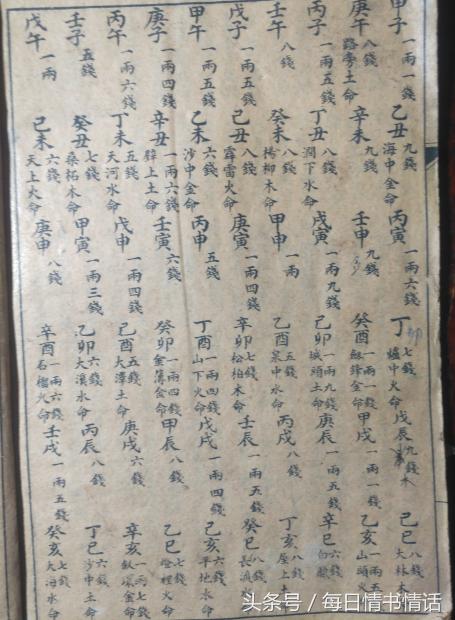 甲子 一兩一錢 乙丑 九錢 海中金命 丙寅 一兩六錢 丁卯 七錢 爐中火命 戊辰 九錢 木 己巳 八錢 大林木
庚午 八錢 路旁土命 辛未 九錢 壬申 九錢 癸酉 一兩一錢 劍鋒金命 甲戌 一兩一錢 乙亥 一兩五 山頭火
丙子 一兩五錢 丁丑 八錢 澗下水命 戊寅 一兩九錢 己卯 一兩九錢 城頭土命 庚辰 一兩五錢 辛巳 六錢 白臘
壬午 八錢 癸未 八錢 楊柳木命 甲申 一兩 乙酉 五錢 泉中水命 丙戌 八錢 丁亥 八錢 屋上土
戊子 一兩五錢 己丑 八錢 霹雷火命 庚寅 一兩四錢 辛卯 七錢 松柏木命 壬辰 一兩五錢 癸巳 八錢 長流
甲午 一兩五錢 乙未 六錢 沙中金命 丙申 五錢 丁酉 一兩四錢 山下火命 戊戌 一兩四錢 己亥 六錢 平地水命
庚子 一兩四錢 辛丑 一兩六錢 壁上土命 壬寅 六錢 癸卯 一兩四錢 金簿金命 甲辰 八錢 乙巳 七錢 燈裡火命
丙午 一兩六錢 丁未 五錢 天河水命 戊申 一兩四錢 己酉 五錢 大澤土命 庚戌 六錢 辛亥 一兩七錢 釵環金命
壬子 五錢 癸丑 七錢 桑柘木命 甲寅 一兩三錢 乙卯 六錢 大溪水命 丙辰 八錢 丁巳 六錢 沙中土命
戊午 一兩 己未 六錢 天上火命 庚申 八錢 辛酉 一兩六錢 石榴火命 壬戌 一兩五錢 癸亥 七錢 大海水命
头条号 / 每日情书情话